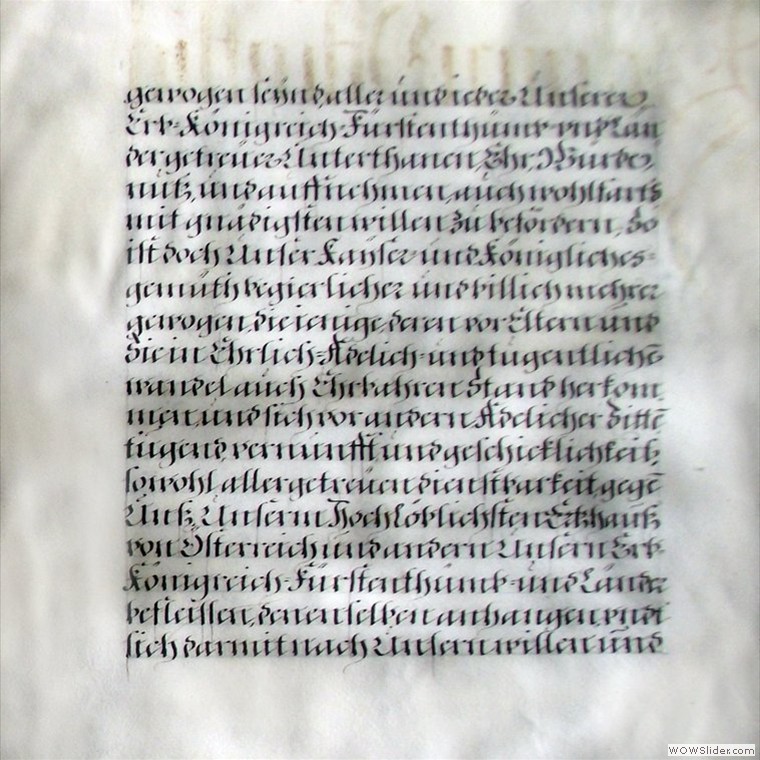 gewogen seynd, aller und ieder Unserer
Erb-Königreich Fürstenthumb- und Län
der getreuer Unterthanen, Ehr, Würde,
nutz, und auffnehmen, auch wohlfarts
mit gnädigsten willen zu befördern, So
ist doch Unser Kayser- und Königliches-
gemüth begierlicher und billich mehrer
gewogen, die ienige, deren vor Eltern und
Sie in Ehrlich-Adelich- und tugentlichē
wandel auch Ehrbahren Stand herkom
men, und sich vor andern Adelicher Sittē
tugend, vernunfft und geschicklichkeit,
sowohl aller getreuen dienstbarkeit, gegē
Unß, Unserm Hochlöblichsten Ertzhauß
von Österreich und andern Unsern Erb-
Königreich-Fürstenthumb- und Länder
befleissen, denenselben anhangen, undt
sich darmit nach Unserm willen und
WOWSlider.com